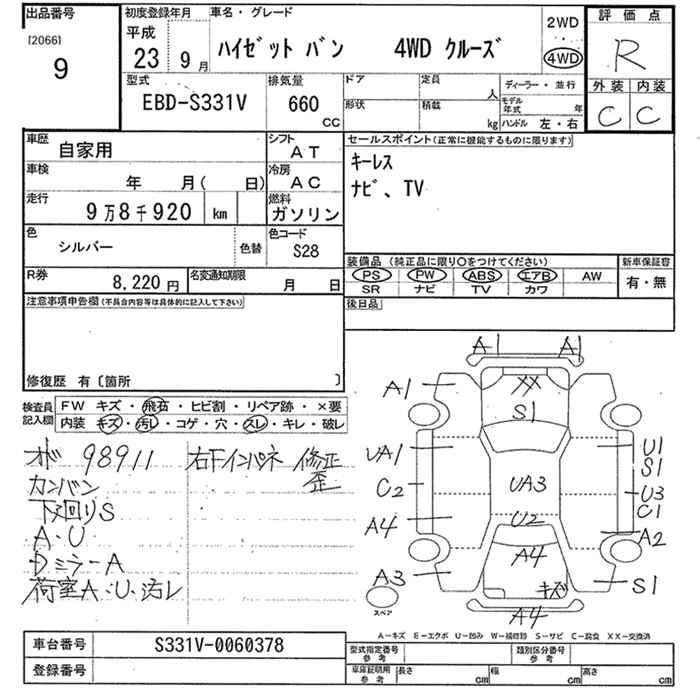 出品番号
[2066]
9
初度登録年月
平成
23 9 月
車名・グレード
ハイゼット バン 4WD クルーズ
2WD
4WD
評価点
R
外装 内装
C C
型式
EBD-S331V
排気量
660
CC
ドア
形状
定員
人
積載
kg
ディーラー・並行
モデル年式 年
ハンドル 左・右
車歴
自家用
シフト
AT
車検
年 月( 日)
冷房
AC
走行
9万8千920 km
燃料
ガソリン
色
シルバー
色替
色コード
S28
R券
8,220 円
名変通知期限
月 日
セールスポイント(正常に機能するものに限ります)
キーレス
ナビ、TV
装備品 (純正品に限り○をつけてください)
PS PW ABS エアB AW
SR ナビ TV カワ
新車保証書
有・無
後日品
注意事項申告欄(不具合内容等は具体的に記入して下さい)
修復歴 有〔箇所 〕
検査員記入欄
FW キズ・飛石・ヒビ割・リペア跡・×要
内装 キズ・汚レ・コゲ・穴・スレ・キレ・破レ
オド 98911
カンバン
下廻りS
A・U
Dミラー A
荷室A・U・汚レ
右下インパネ 修正
歪
A1
A1
XX
S1
UA1
U1
S1
C2
UA3
U3
C1
A4
U2
A2
A4
A3
キズ
S1
A4
スペア
A-キズ E-エクボ U-凹み W-補修跡 S-サビ C-腐食 XX-交換済
車台番号
S331V-0060378
登録番号
型式指定番号
参考
類別区分番号
参考
車庫証明用
参考
長さ cm 幅 cm 高さ cm